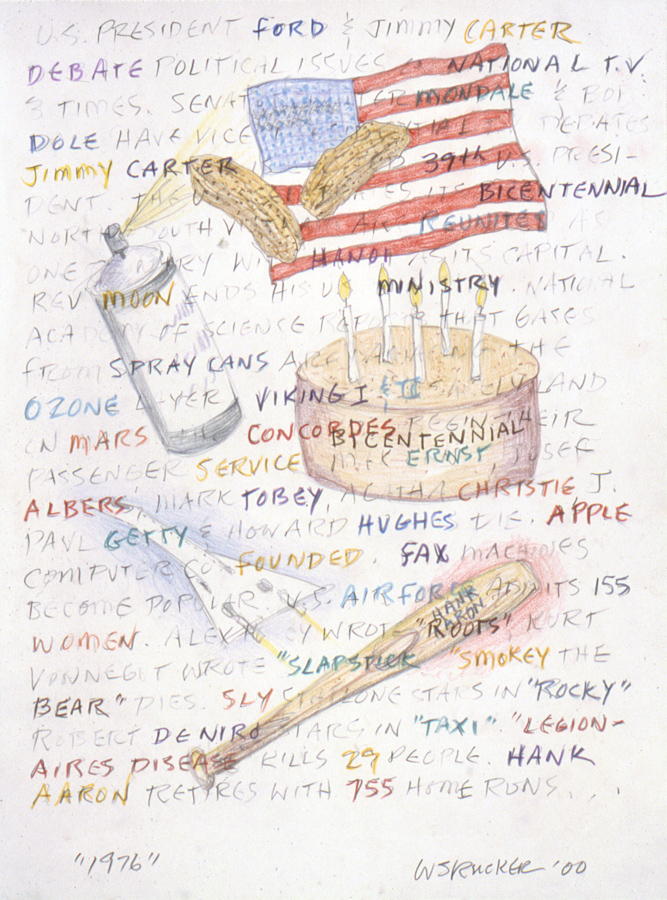 U.S. PRESIDENT FORD & Jimmy CARTER
DEBATE POLITICAL ISSUES NATIONAL T.V.
3 TIMES. SENAT TER MONDALE & BOB
DOLE HAVE VICE TIAL DEBATES
Jimmy CARTER 39th U.S. PRESI-
DENT. THE ITS BICENTENNIAL
NORTH OUTH REUNITED AS
ONE WI HANOI AS ITS CAPITAL.
REV MOON ENDS HIS U.S. MINISTRY. NATIONAL
ACADEMY OF SCIENCE REPORTS THAT GASES
FROM SPRAY CANS ARE THE
OZONE LAYER. VIKING I & II SAFELY LAND
ON MARS THE CONCORDES BEGIN THEIR
BICENTENNIAL
PASSENGER SERVICE MAX ERNST, JOSEF
ALBERS, MARK TOBEY, AGATHA CHRISTIE, J.
PAUL GETTY & HOWARD HUGHES DIE. APPLE
COMPUTER CO. FOUNDED. FAX MACHINES
BECOME POPULAR. U.S. AIRFORCE ADMITS 155
HANK
AARON
WOMEN. ALEX LEY WROTE "ROOTS", KURT
VONNEGUT WROTE "SLAPSTICK "SMOKEY THE
BEAR" DIES. SLY STALLONE STARS IN "ROCKY"
ROBERT DENIRO STARS IN "TAXI". "LEGION-
AIRES DISEASE KILLS 29 PEOPLE. HANK
AARON RETIRES WITH 755 HOME RUNS...
"1976" WSRUCKER '00